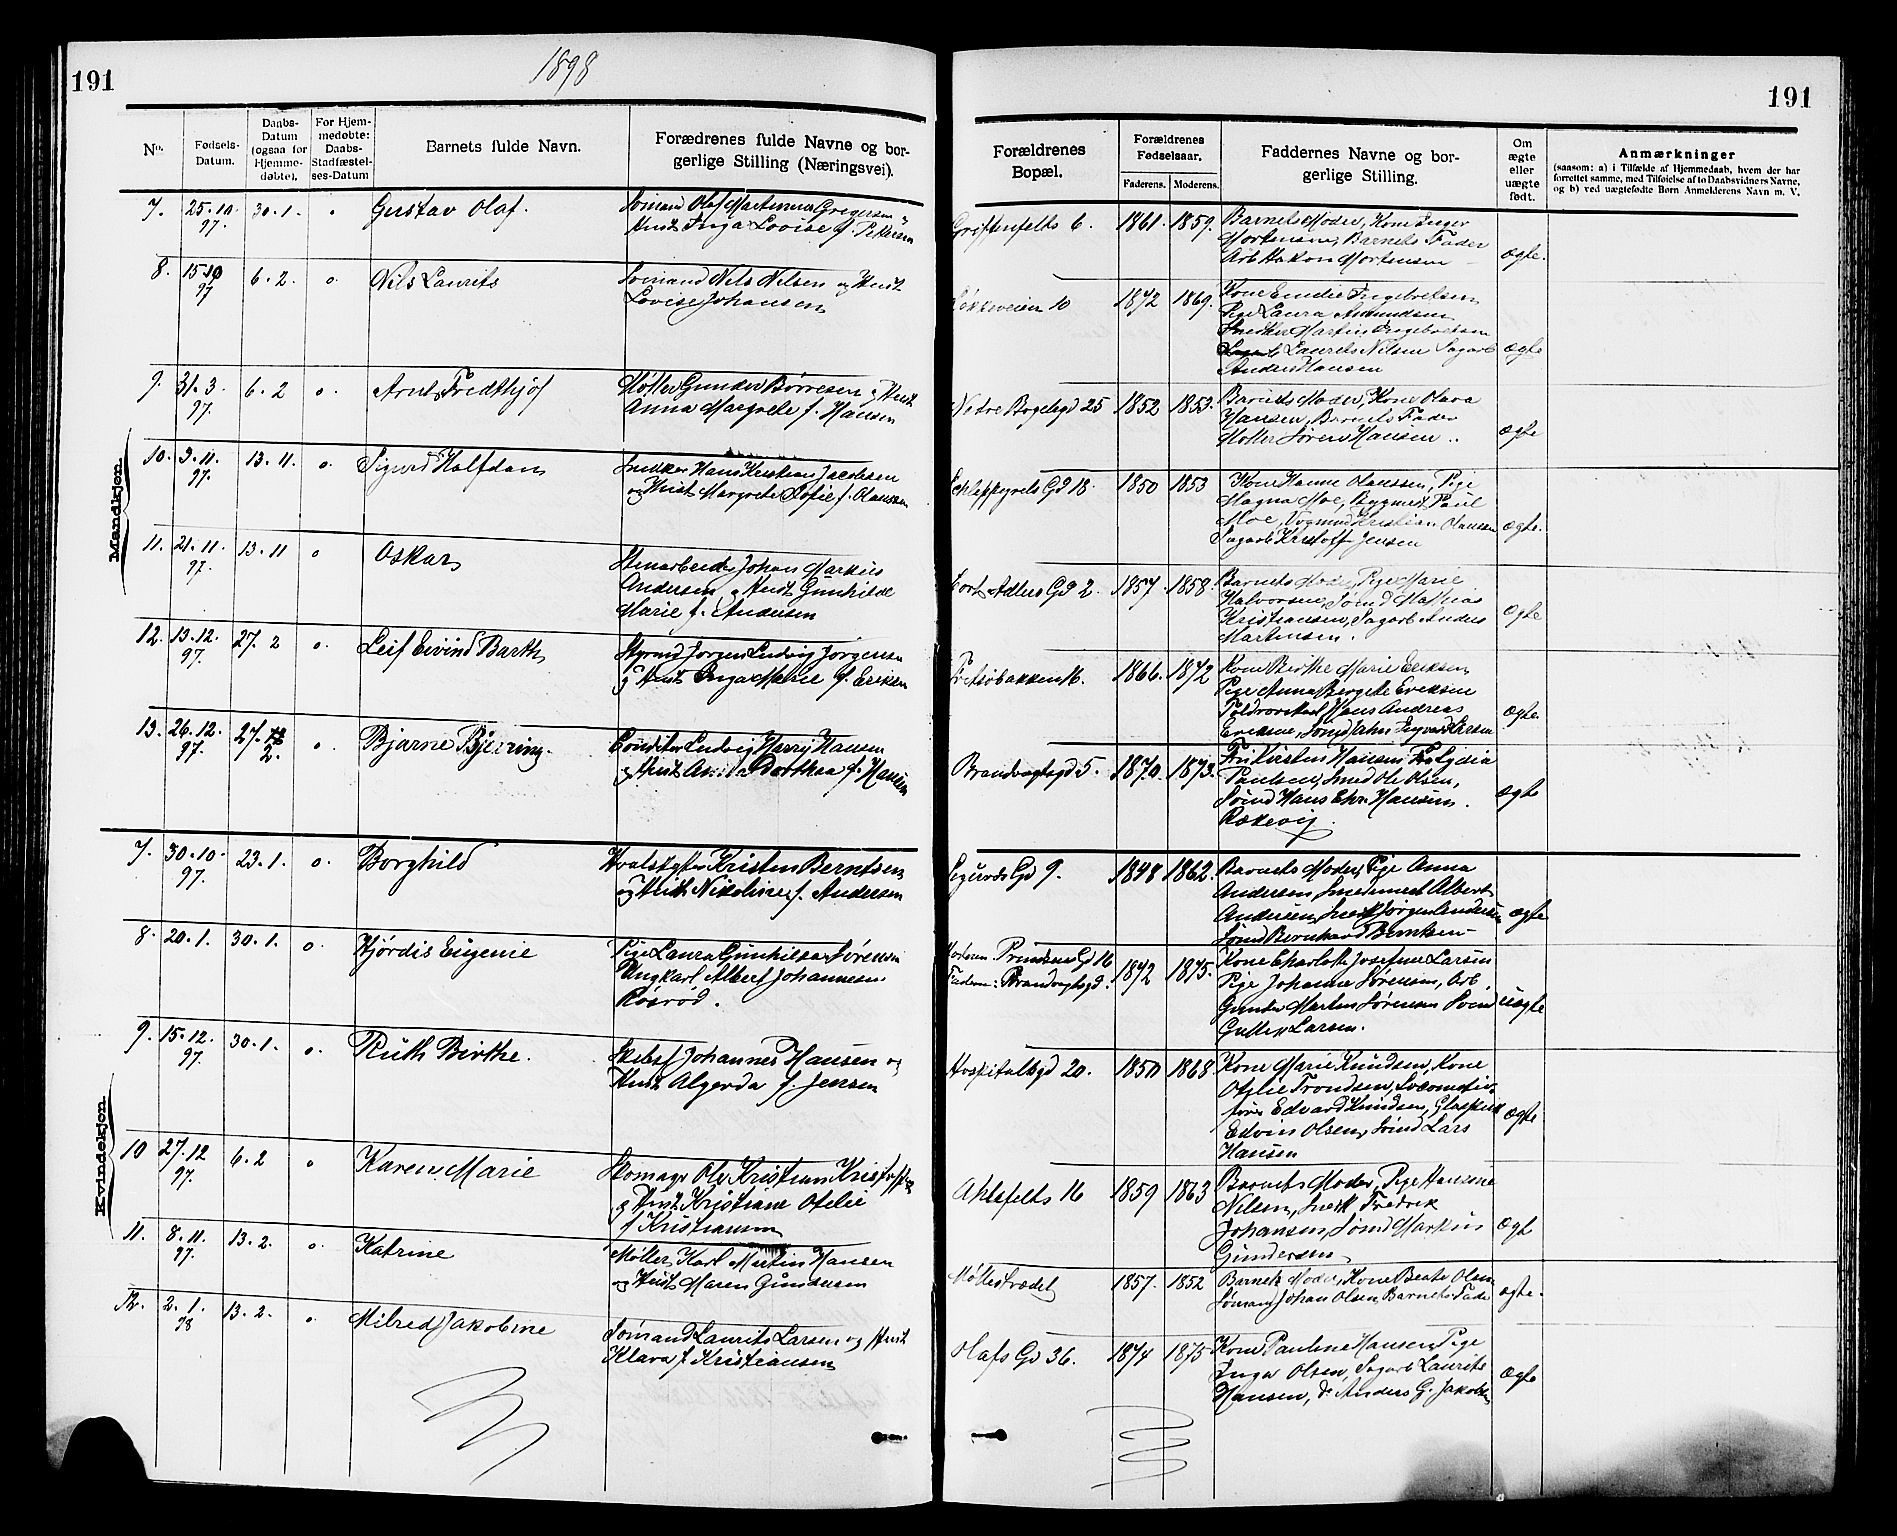 191
1898
191
No.
Fødsels-
Datum.
Daabs-
Datum
(ogsaa for
Hjemme-
døbte).
For Hjem-
medøbte:
Daabs-
Stadfæstel-
ses-Datum
Barnets fulde Navn.
Forædrenes fulde Navne og bor-
gerlige Stilling (Næringsvei).
Forældrenes
Bopæl.
Forældrenes
Fødselsaar.
Faderens.
Moderens.
Faddernes Navne og bor-
gerlige Stilling.
Om
ægte
eller
uægte
født.
Anmærkninger
(saasom: a) i Tilfælde af Hjemmedaab, hvem der har
forrettet samme, med Tilføielse af to Daabsvidners Navne,
og b) ved uægtefødte Børn Anmelderens Navn m. V.
Mandkjøn.
7. 25.10.97. 30.1. o Gustav Olaf.
Sømand Olaf Martinius Gregersen og
Hust Inga Lovise f. Pettersen
Griffenfelts 6. 1861. 1859.
Barnets Moder, Kone Inger
Mortensen, Barnets Fader
Arb Hakon Mortensen
ægte.
8. 15.10.97 6.2. o. Nils Laurits
Sømand Nils Nilsen og Hust
Lovise Johansen
Løkkeveien 10 1872 1869.
Kone Emilie Ingebretsen
Pige Laura Amundsen
Snedker Martin Ingebretsen
Laurits Nilsen Sagarb
Anders Hansen
ægte
9. 31.3.97. 6.2 o. Arnt Fredthjof
Møller Gunder Børresen og Hust
Anna Margrete f. Hansen
Nedre Bøgelsgd 25 1852 1853.
Barnets Moder, Kone Olava
Hansen, Barnets Fader
Møller Søren Hansen..
ægte
10. 9.11.97. 13.11. o. Sigurd Halfdan
Snedker Hans Kristian Jacobsen
og Hust Margrete Sofie f. Olaussen
Schleppgrels Gd 18. 1850 1853
Kone Hanne Olaussen, Pige
Magna Moe, Bygmest Paul
Moe, Vognmd Kristian Olaussen
Sagarb Kristoff Jensen
ægte.
11. 21.11.97. 13.11 o Oskar
Stenarbeider Johan Markus
Andersen og Hust Gunhilde
Marie f. Andersen
Cort Adlers Gd 2. 1857. 1858.
Barnets Moder, Pige Marie
Halvorsen, Sømd Mathias
Kristiansen, Sagarb Anders
Martensen.
ægte
12. 13.12.97. 27.2 o. Leif Eivind Barth
Styrmd Jørgen Ludvig Jørgensen
og Hust Inga Marie f. Eriksen
Fritsøbakken 16. 1866. 1872
Kone Birthe Marie Eriksen
Pige Anna Bergete Eriksen
Toldrorskarl Hans Andreas
Eriksen, Sømd John Ingvard Larsen
ægte.
13. 26.12.97. 27.2. o Bjarne Bjerring.
Conditor Ludvig Harry Hansen
og Hust Anna Dorthea f. Hansen
Brandvagtsgd 5. 1870. 1873.
Fru Kirsten Hansen Frk Lydia
Paulsen, Smed Ole Olsen,
Sømd Hans Chr. Hansen.
Rækevig.
ægte
Kvindekjøn.
7. 30.10.97. 23.1. o. Borghild
Hvalskytter Kristen Berntsen
og Hust Nikoline f. Andersen
Sigurds Gd 9. 1848 1862.
Barnets Moder, Pige Anna
Andersen, Smedmest Albert
Andersen, Snedk Jørgen Andersen
Sømd Bernhard Berntsen
ægte
8. 20.1. 30.1. o. Hjørdis Eugenie
Pige Laura Gunhilda Sørensen
Ungkarl Albert Johannesen
Røsrød.
Moderen: Prindsens Gd 16
Faderen: Brandvagtsgd. 1872 1875.
Kone Charlotte Josefine Larsen
Pige Johanne Sørensen, Arb.
Gunder Martin Sørensen Sømd
Gullik Larsen.
uægte
9. 15.12.97. 30.1. o. Ruth Birthe.
Skibsf Johannes Hansen og
Hust Algerda f. Jensen
Hospitalsgd 20. 1850 1868
Kone Marie Knudsen, Kone
Otilie Trondsen, Locomotiv-
fører Edvard Knudsen, Glaspust
Edvin Olsen, Sømd Lars
Hansen
ægte
10 27.12.97. 6.2 o Karen Marie
Skomagr Ole Kristian Kristoffersen
og Hust Kristiane Otelie
f Kristiansen
Ahlefelts 16 1859 1863
Barnets Moder, Pige Hansine
Nilsen, Snedk Fredrik
Johansen, Sømd Markus
Gundersen
ægte
11. 8.11.97. 13.2. o. Katrine
Møller Karl Martin Hansen
og Hust Maren Gundersen
Møllestrædet 1857. 1852
Barnets Moder, Kone Beate Olsen
Sømand Johan Olsen, Barnets Fader
ægte.
12. 2.1.98 13.2. o. Milred Jakobine
Sømand Laurits Larsen og Hust
Klara f Kristiansen
Olafs Gd 36. 1874 1875
Kone Pauline Hansen, Pige
Inga Olsen, Sagarb Laurits
Hansen, do Anders G. Jakobsen
ægte